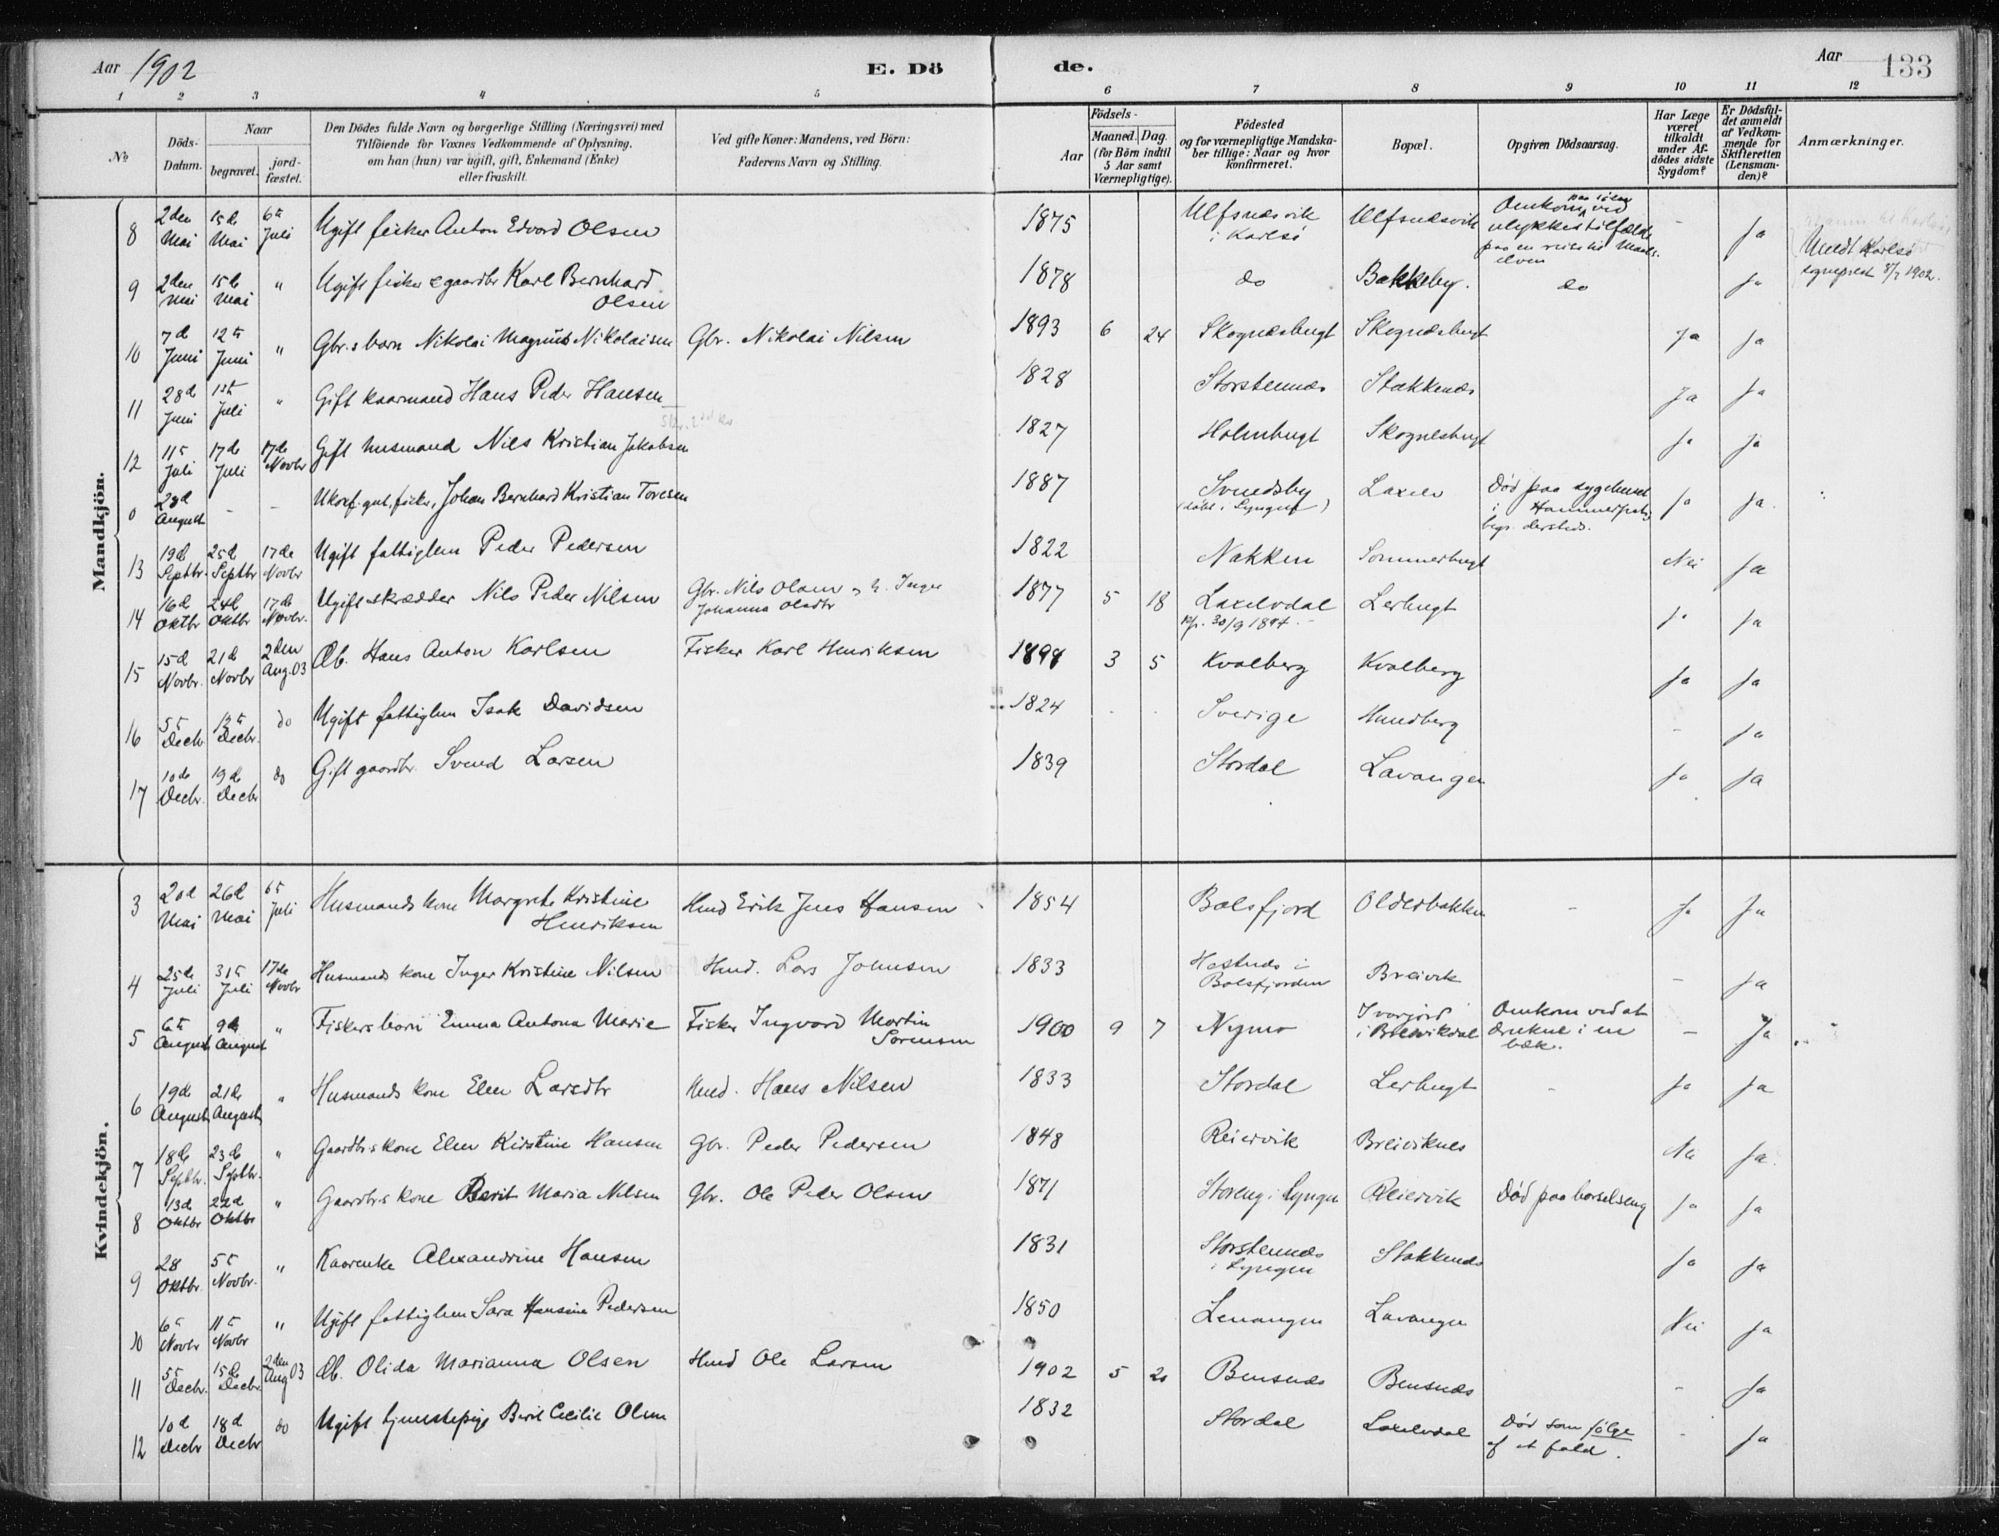 Aar 1902 E. Döde. Aar 133
1 2 3 4 5 6 7 8 9 10 11 12
No
Döds-Datum.
Naar
begravet.
jord-fæstet.
Den Dödes fulde Navn og borgerlige Stilling (Næringsvei) med
Tilföiende for Voxnes Vedkommende af Oplysning,
om han (hun) var ugift, gift, Enkemand (Enke)
eller fraskilt.
Ved gifte Koner: Mandens, ved Börn:
Faderens Navn og Stilling.
Födsels-
Aar
Maaned. Dag.
(for Börn indtil
5 Aar samt
Værnepligtige).
Födested
og for værnepligtige Mandska-
ber tillige: Naar og hvor
konfirmeret.
Bopæl.
Opgiven Dödsaarsag.
Har Læge
været
tilkaldt
under Af-
dödes sidste
Sygdom?
Er Dödsfal-
det anmeldt
af Vedkom-
mende for
Skifteretten
(Lensman-
den)?
Anmærkninger.
Mandkjön.
8 2den Mai 15d Mai 6te Juli Ugift fisker Anton Edvard Olsen 1875 Ulfsnæsvik i Karlsö Ulfsnæsvik Omkom ved ulykkestilfælde paa en reise - Ja Meldt Karlsö sogneprest 8/7 1902.
9 2den Mai 15d Mai " Ugift fisker & gaardbr Karl Bernhard Olsen 1878 do Bakkeby. do Ja
10 7d Juni 12te Juni " Gbr.s barn Nikolai Magnus Nikolaisen Gbr. Nikolai Nilsen 1893 6 24 Skognæsbugt Skognæsbugt Ja Ja
11 28d Juni 1ste Juli " Gift kaarmand Hans Peder Hansen 1828 Storstennæs Stakkenæs Ja Ja
12 11te Juli 17de Juli 17de Novbr Gift husmand Nils Kristian Jakobsen 1827 Holmbugt Skognesbugt Ja Ja
0 23d August - - Ukonf. gut, fisker, Johan Bernhard Kristian Toresen 1887 Svendsby (döbt i Lyngen) Laxelv Död paa sygehuset i Hammerfest, begr. dersteds. Ja Ja.
13 19d Septbr. 25d Septbr 17de Novbr Ugift fattiglem Peder Pedersen 1822 Nakken Sommerbugt Nei Ja
14 16d Oktbr 24d Oktbr 17de Novbr. Ugift skrædder Nils Peder Nilsen Gbr. Nils Olsen og h. Inger Johanna Olsdtr 1877 5 18 Laxelvdal Lerbugt Ja Ja
15 15d Novbr. 21d Novbr 2den Aug. 03 Æb. Hans Anton Karlsen Fisker Karl Henriksen 1898 3 5 Kvalberg Kvalberg Ja Ja
16 5te Decbr 12te Decbr. do Ugift fattiglem Isak Davidsen 1824 Sverige Hundberg - Ja
17 10de Decbr. 19d Decbr do Gift gaardbr. Svend Larsen 1839 Stordal Lavangen Ja Ja
Kvindekjön.
3 20d Mai 26d Mai 6te Juli Husmands kone Margrete Kristine Henriksen Hmd Erik Jens Hansen 1854 Balsfjord Olderbakken - Ja Ja
4 25de Juli 31te Juli 17de Novbr Husmands kone Inger Kristine Nilsen Hmd. Lars Johnsen 1833 Hestnæs i Balsfjorden Breivik - Ja
5 6te August 9de August " Fiskers barn Emma Antona Marie Fisker Ingvard Martin Sörensen 1900 9 7 Nymo Ivarjord i Breivikdal Omkom ved at drukne i en bæk. - Ja
6 19d August 21de August " Husmands kone Elen Larsdtr Hmd. Hans Nilsen 1833 Stordal Lerbugt - Ja Ja
7 18de Septbr. 23d Septbr. " Gaardbr.s kone Elen Kirstine Hansen Gbr. Peder Pedersen 1848 Reiervik Breiviknes Nei Ja.
8 13d Oktbr 22d Oktbr " Gaardbr.s kone Berit Maria Nilsen Gbr. Ole Peder Olsen 1871 Storeng i Lyngen Reiervik Död paa barselseng Ja Ja
9 28 Oktbr. 5te Novbr. " Kaarenke Alexandrine Hansen 1831 Storstennæs i Lyngen Stakkenæs Ja Ja
10 6te Novbr 11te Novbr " Ugift fattiglem Sara Hansine Pedersen 1850 Lenangen Lavangen Nei Ja
11 5te Decbr. 15de Decbr. 2den Aug 03 Æb. Olida Marianna Olsen Hmd Ole Larsen 1902 5 20 Bensnæs Bensnæs - Ja
12 10d Decbr 18d Decbr do Ugift tjenestepige Berit Cecilie Olsen 1832 Stordal Laxelvdal Död som fölge af et fald. - Ja